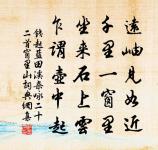 遠岫見如近
千里一窗里
坐来石上雲
乍謂壺中起
錢起藍田溪杂咏二十
二首窗里山詞典網集